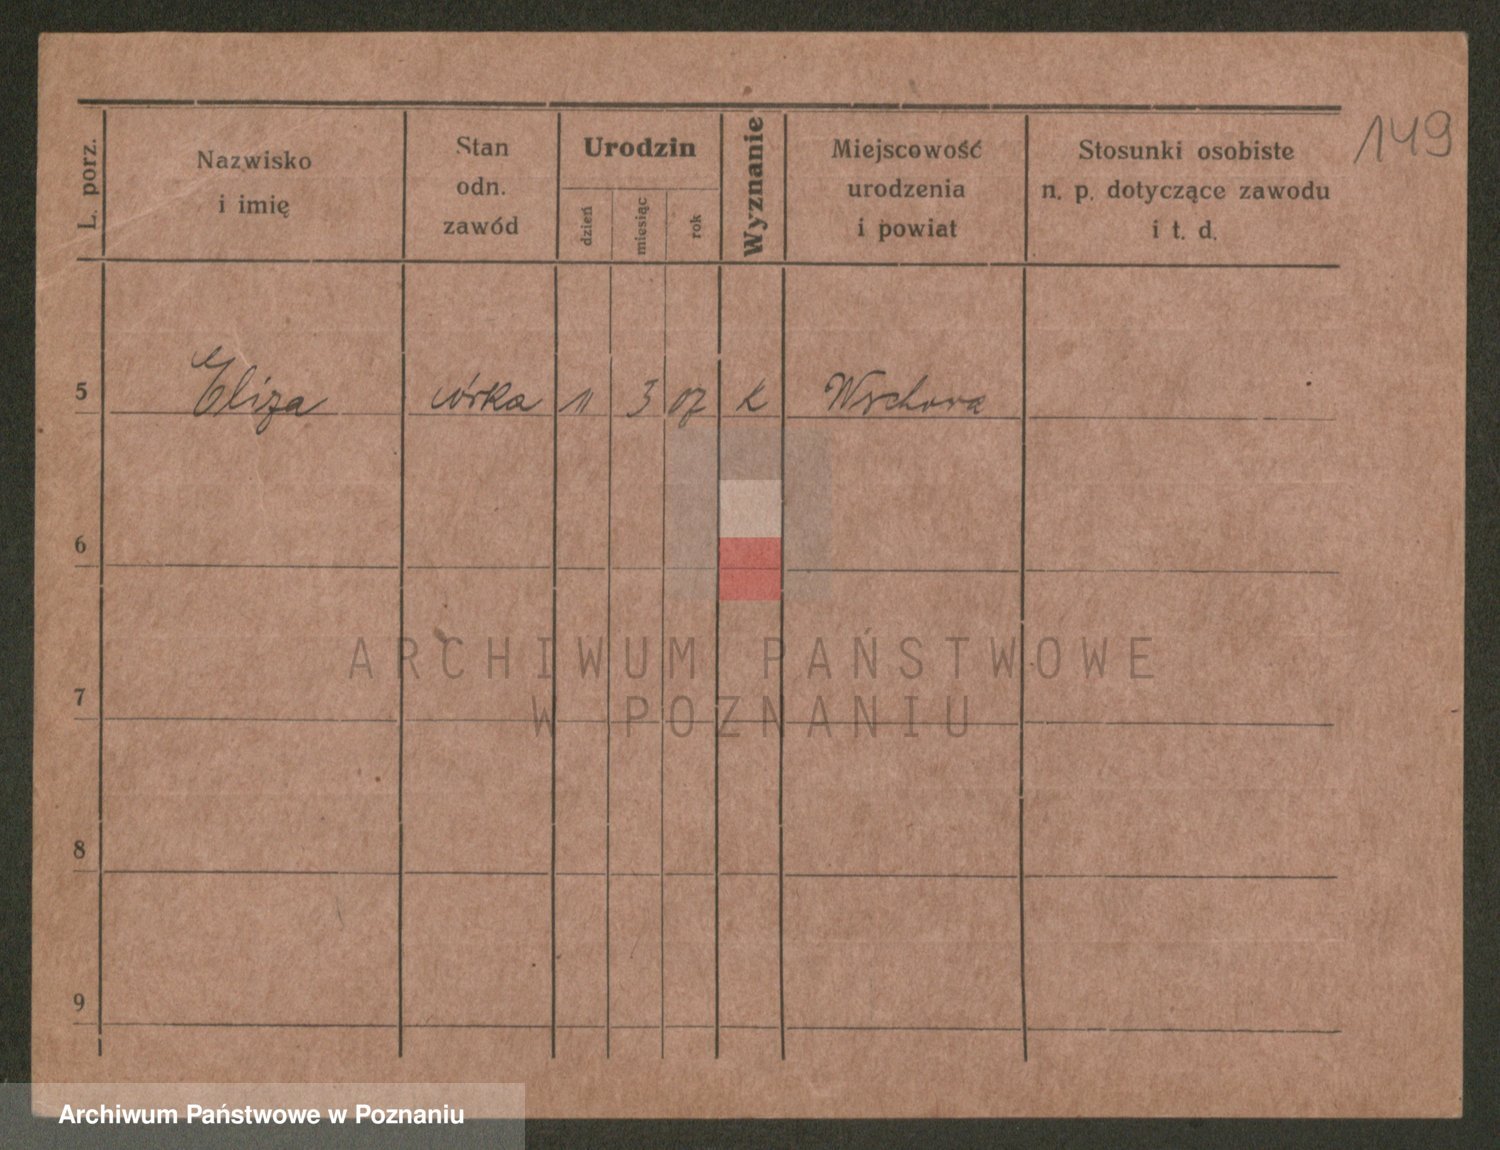 149
L. porz. Nazwisko i imię Stan odn. zawód Urodzin dzień miesiąc rok Wyznanie Miejscowość urodzenia i powiat Stosunki osobiste n. p. dotyczące zawodu i t. d.
5 Eliza córka 11 3 07 k Wschowa
6
7
8
9
ARCHIWUM PAŃSTWOWE
W POZNANIU
Archiwum Państwowe w Poznaniu